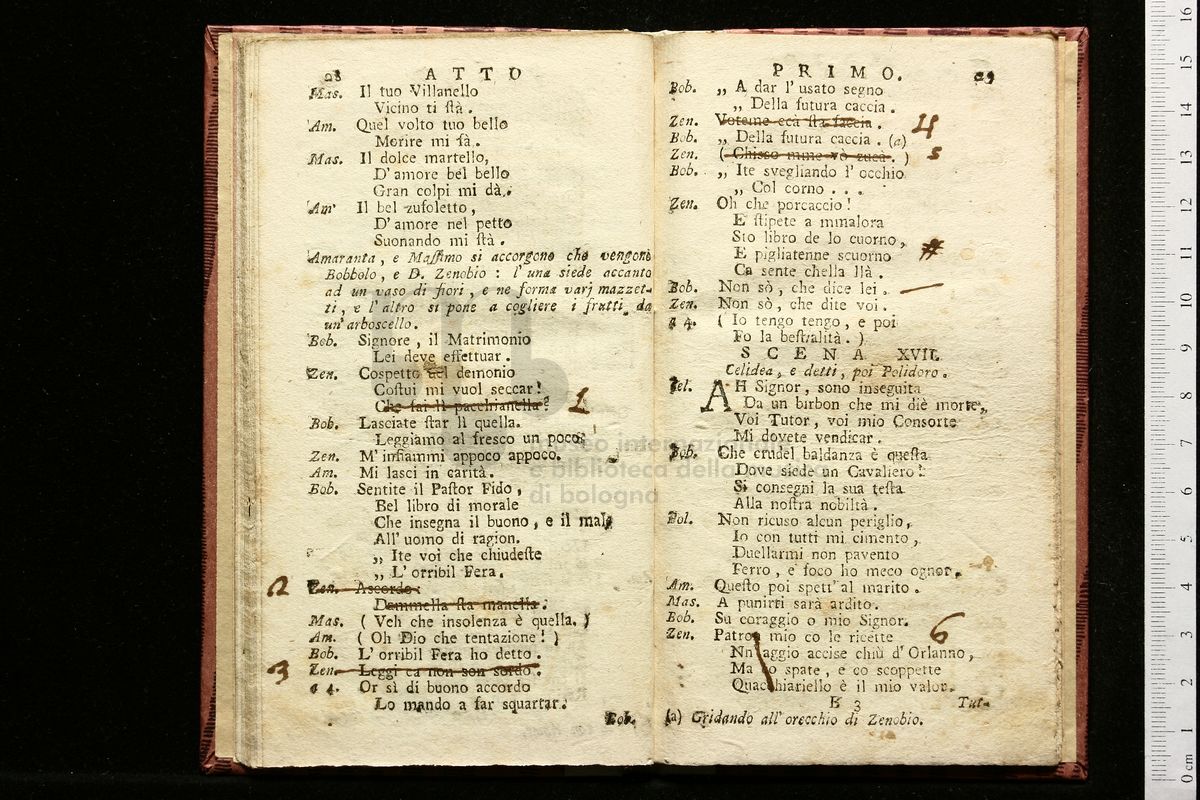 28 ATTO
Mas. Il tuo Villanello
Vicino ti ſtà.
Am. Quel volto tuo bello
Morire mi fà.
Mas. Il dolce martello,
D'amore bel bello
Gran colpi mi dà.
Am. Il bel zufoletto,
D'amore nel petto
Suonando mi ſtà.
Amaranta, e Maſſimo si accorgono che vengono
Bobbolo, e D. Zenobio: l'una siede accanto
ad un vaso di fiori, e ne forma varj mazzet-
ti, e l'altro si pone a cogliere i frutti da
un'arboscello.
Bob. Signore, il Matrimonio
Lei deve effettuar.
Zen. Cospetto del demonio
Coſtui mi vuol seccar!
Che fai lì pacchianella? 1
Bob. Lasciate ſtar lì quella.
Leggiamo al fresco un poco.
Zen. M'infiammi appoco appoco.
Am. Mi lasci in carità.
Bob. Sentite il Paſtor Fido,
Bel libro di morale
Che insegna il buono, e il male
All'uomo di ragion.
„ Ite voi che chiudeſte
„ L'orribil Fera.
2 Zen. Ascordo
Dammella ſta manella.
Mas. (Veh che insolenza è quella.)
Am. (Oh Dio che tentazione!)
Bob. L'orribil Fera ho detto.
3 Zen. Leggi ca non son sordo.
a 4. Or sì di buono accordo
Lo mando a far squartar.
Bob.
PRIMO. 29
Bob. „ A dar l'usato segno
„ Della futura caccia.
Zen. Voteme ccà ſta faccia. 4
Bob. „ Della futura caccia. (a)
Zen. (Chisso mme vò zuca.) 5
Bob. „ Ite svegliando l'occhio
„ Col corno...
Zen. Oh che porcaccio!
E ſtipete a mmalora
Sto libro de lo cuorno,
E pigliatenne scuorno #
Ca sente chella llà.
Bob. Non sò, che dice lei.
Zen. Non sò, che dite voi.
a 4. (Io tengo tengo, e poi
Fo la beſtialità.)
SCENA XVII.
Celidea, e detti, poi Polidoro.
Cel. AH Signor, sono inseguita
Da un birbon che mi diè morte,
Voi Tutor, voi mio Consorte
Mi dovete vendicar.
Bob. Che crudel baldanza è queſta
Dove siede un Cavaliero!
Si consegni la sua teſta
Alla noſtra nobiltà.
Pol. Non ricuso alcun periglio,
Io con tutti mi cimento,
Duellarmi non pavento
Ferro, e foco ho meco ognor.
Am. Queſto poi spett'al marito.
Mas. A punirti sarà ardito.
Bob. Su coraggio o mio Signor.
Zen. Patron mio co le ricette 6
Nn'aggio accise chiù d'Orlanno,
Ma co spate, e co scoppette
Quacchiariello è il mio valor.
B 3 Tut-
(a) Gridando all'orecchio di Zenobio.
museo internazionale
e biblioteca della musica
di bologna
16
15
14
13
12
11
10
9
8
7
6
5
4
3
2
1
0 cm